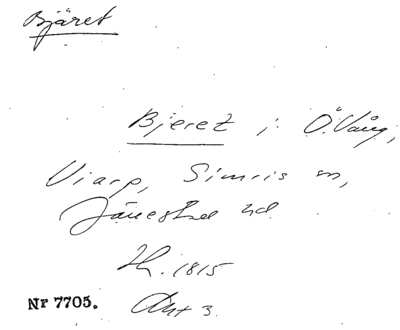 Bjäret
Bjeret i Ö. Vång,
Viarp, Simris sn,
Järrestad hd.
1815
Nr 7705. Akt 3.